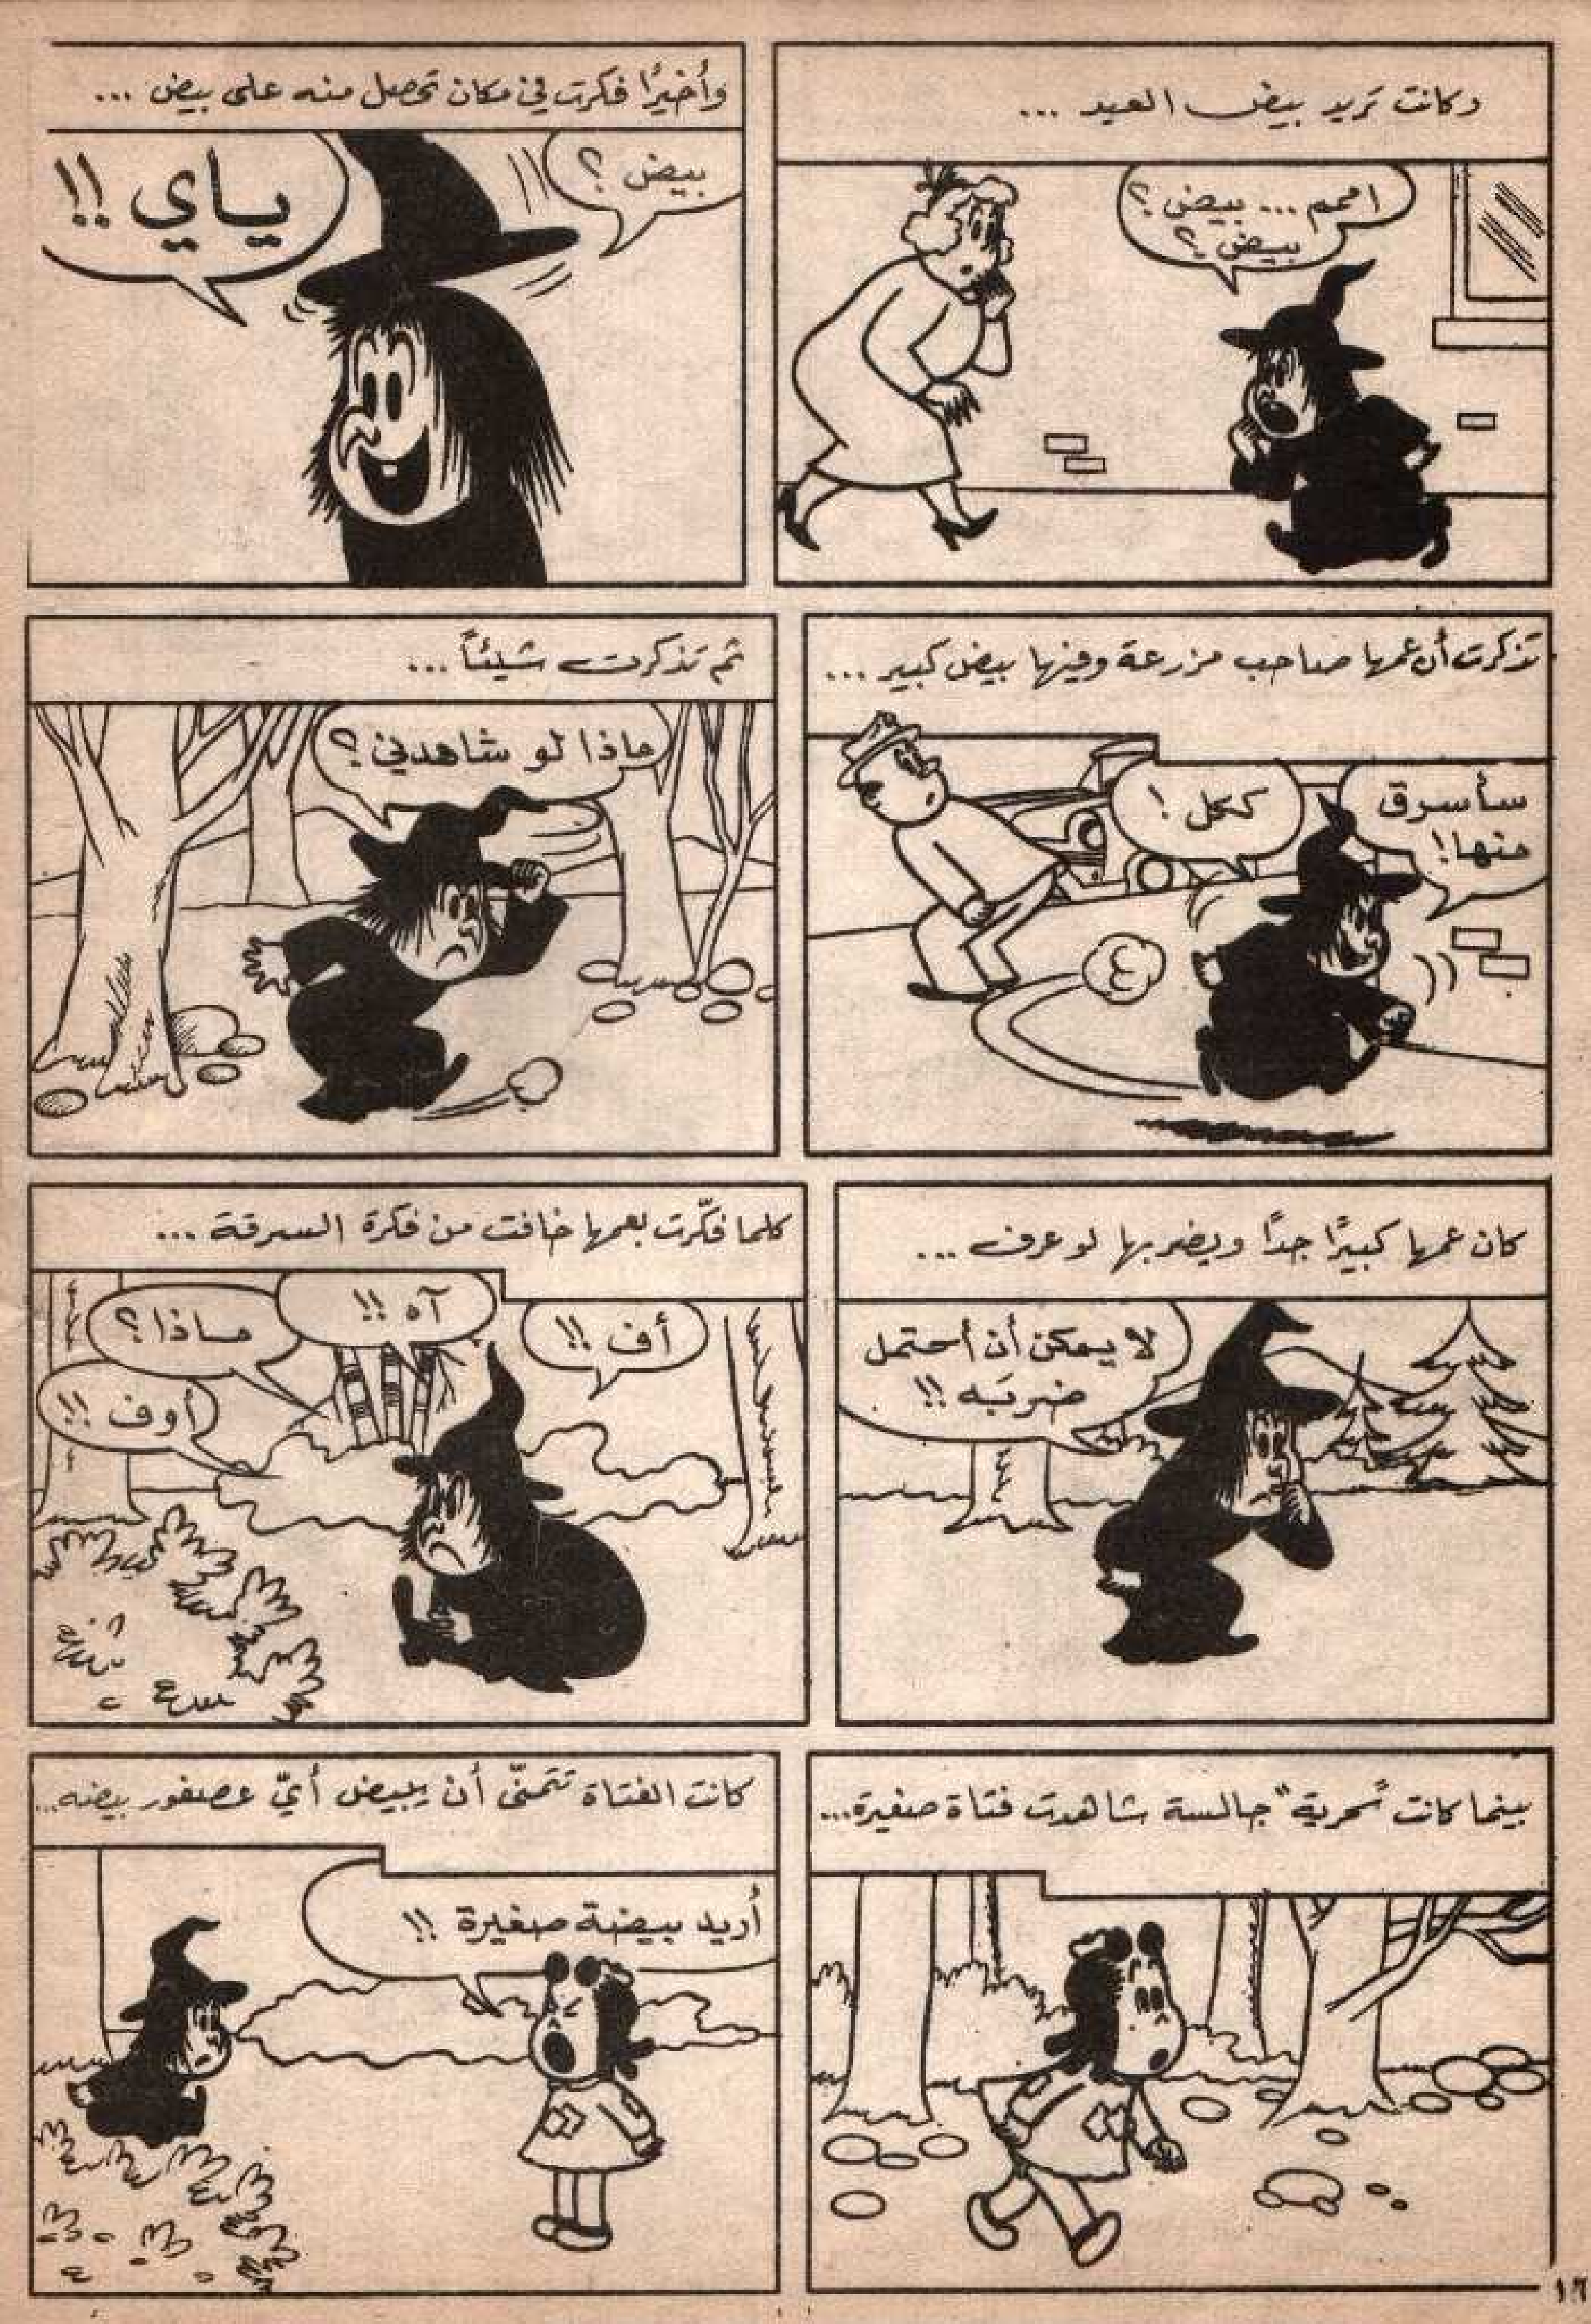 وكانت تريد بيض العيد ...
اممم ... بيض ؟
بيض ؟
وأخيرًا فكرت في مكان تحصل منه على بيض ...
بيض ؟
ياي !!
تذكرت أن عمها صاحب مزرعة وفيها بيض كبير ...
سأسرق
منها !!
ثم تذكرت شيئاً ...
ماذا لو شاهدني ؟
كان عمها كبيرًا جدًا ويضربها لو عرف ...
لا يمكن أن أحتمل
ضربَه !!
كلما فكّرت بعمها خافت من فكرة السرقة ...
أف !!
آه !!
ماذا ؟
أوف !!
بينما كانت "سحرية" جالسة شاهدت فتاة صغيرة...
كانت الفتاة تتمنّى أن يبيض أيّ عصفور بيضه...
أريد بيضة صغيرة !!